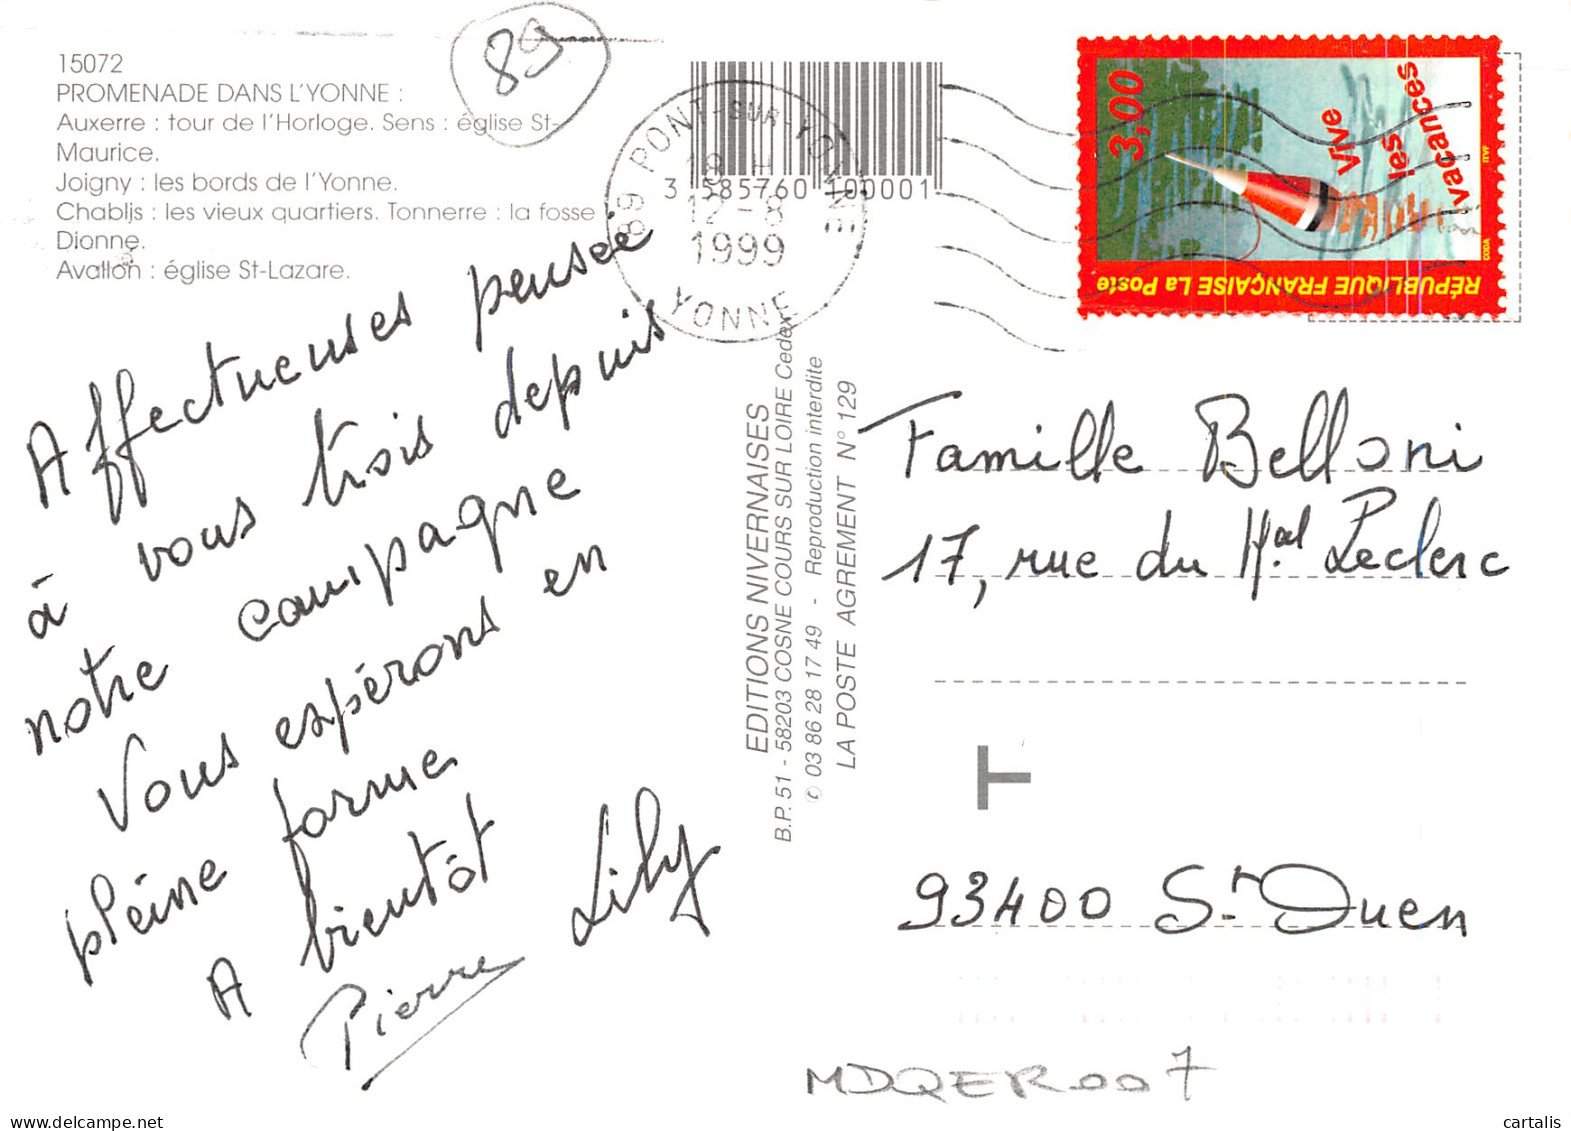 15072
PROMENADE DANS L'YONNE :
Auxerre : tour de l'Horloge. Sens : église St-
Maurice.
Joigny : les bords de l'Yonne.
Chablis : les vieux quartiers. Tonnerre : la fosse
Dionne.
Avallon : église St-Lazare.
89
3 585760 100001
89 PONT-SUR-YONNE
18 H
12-8
1999
YONNE
3,00
Vive
les
vacances
RÉPUBLIQUE FRANÇAISE La Poste
CODA
ITVF
Affectueuses pensée
à vous trois depuis
notre campagne
Vous espérons en
pleine forme
A bientôt
Lily
Pierre
EDITIONS NIVERNAISES
B.P. 51 - 58203 COSNE COURS SUR LOIRE Cedex
© 03 86 28 17 49 - Reproduction interdite
LA POSTE AGREMENT N° 129
Famille Belloni
17, rue du Mal Leclerc
T
93400 St-Ouen
MDQER007
cartalis